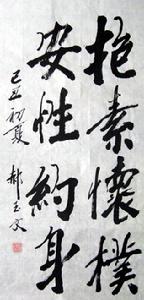 抱素懷樸
安性約身
己丑初夏
郝玉文